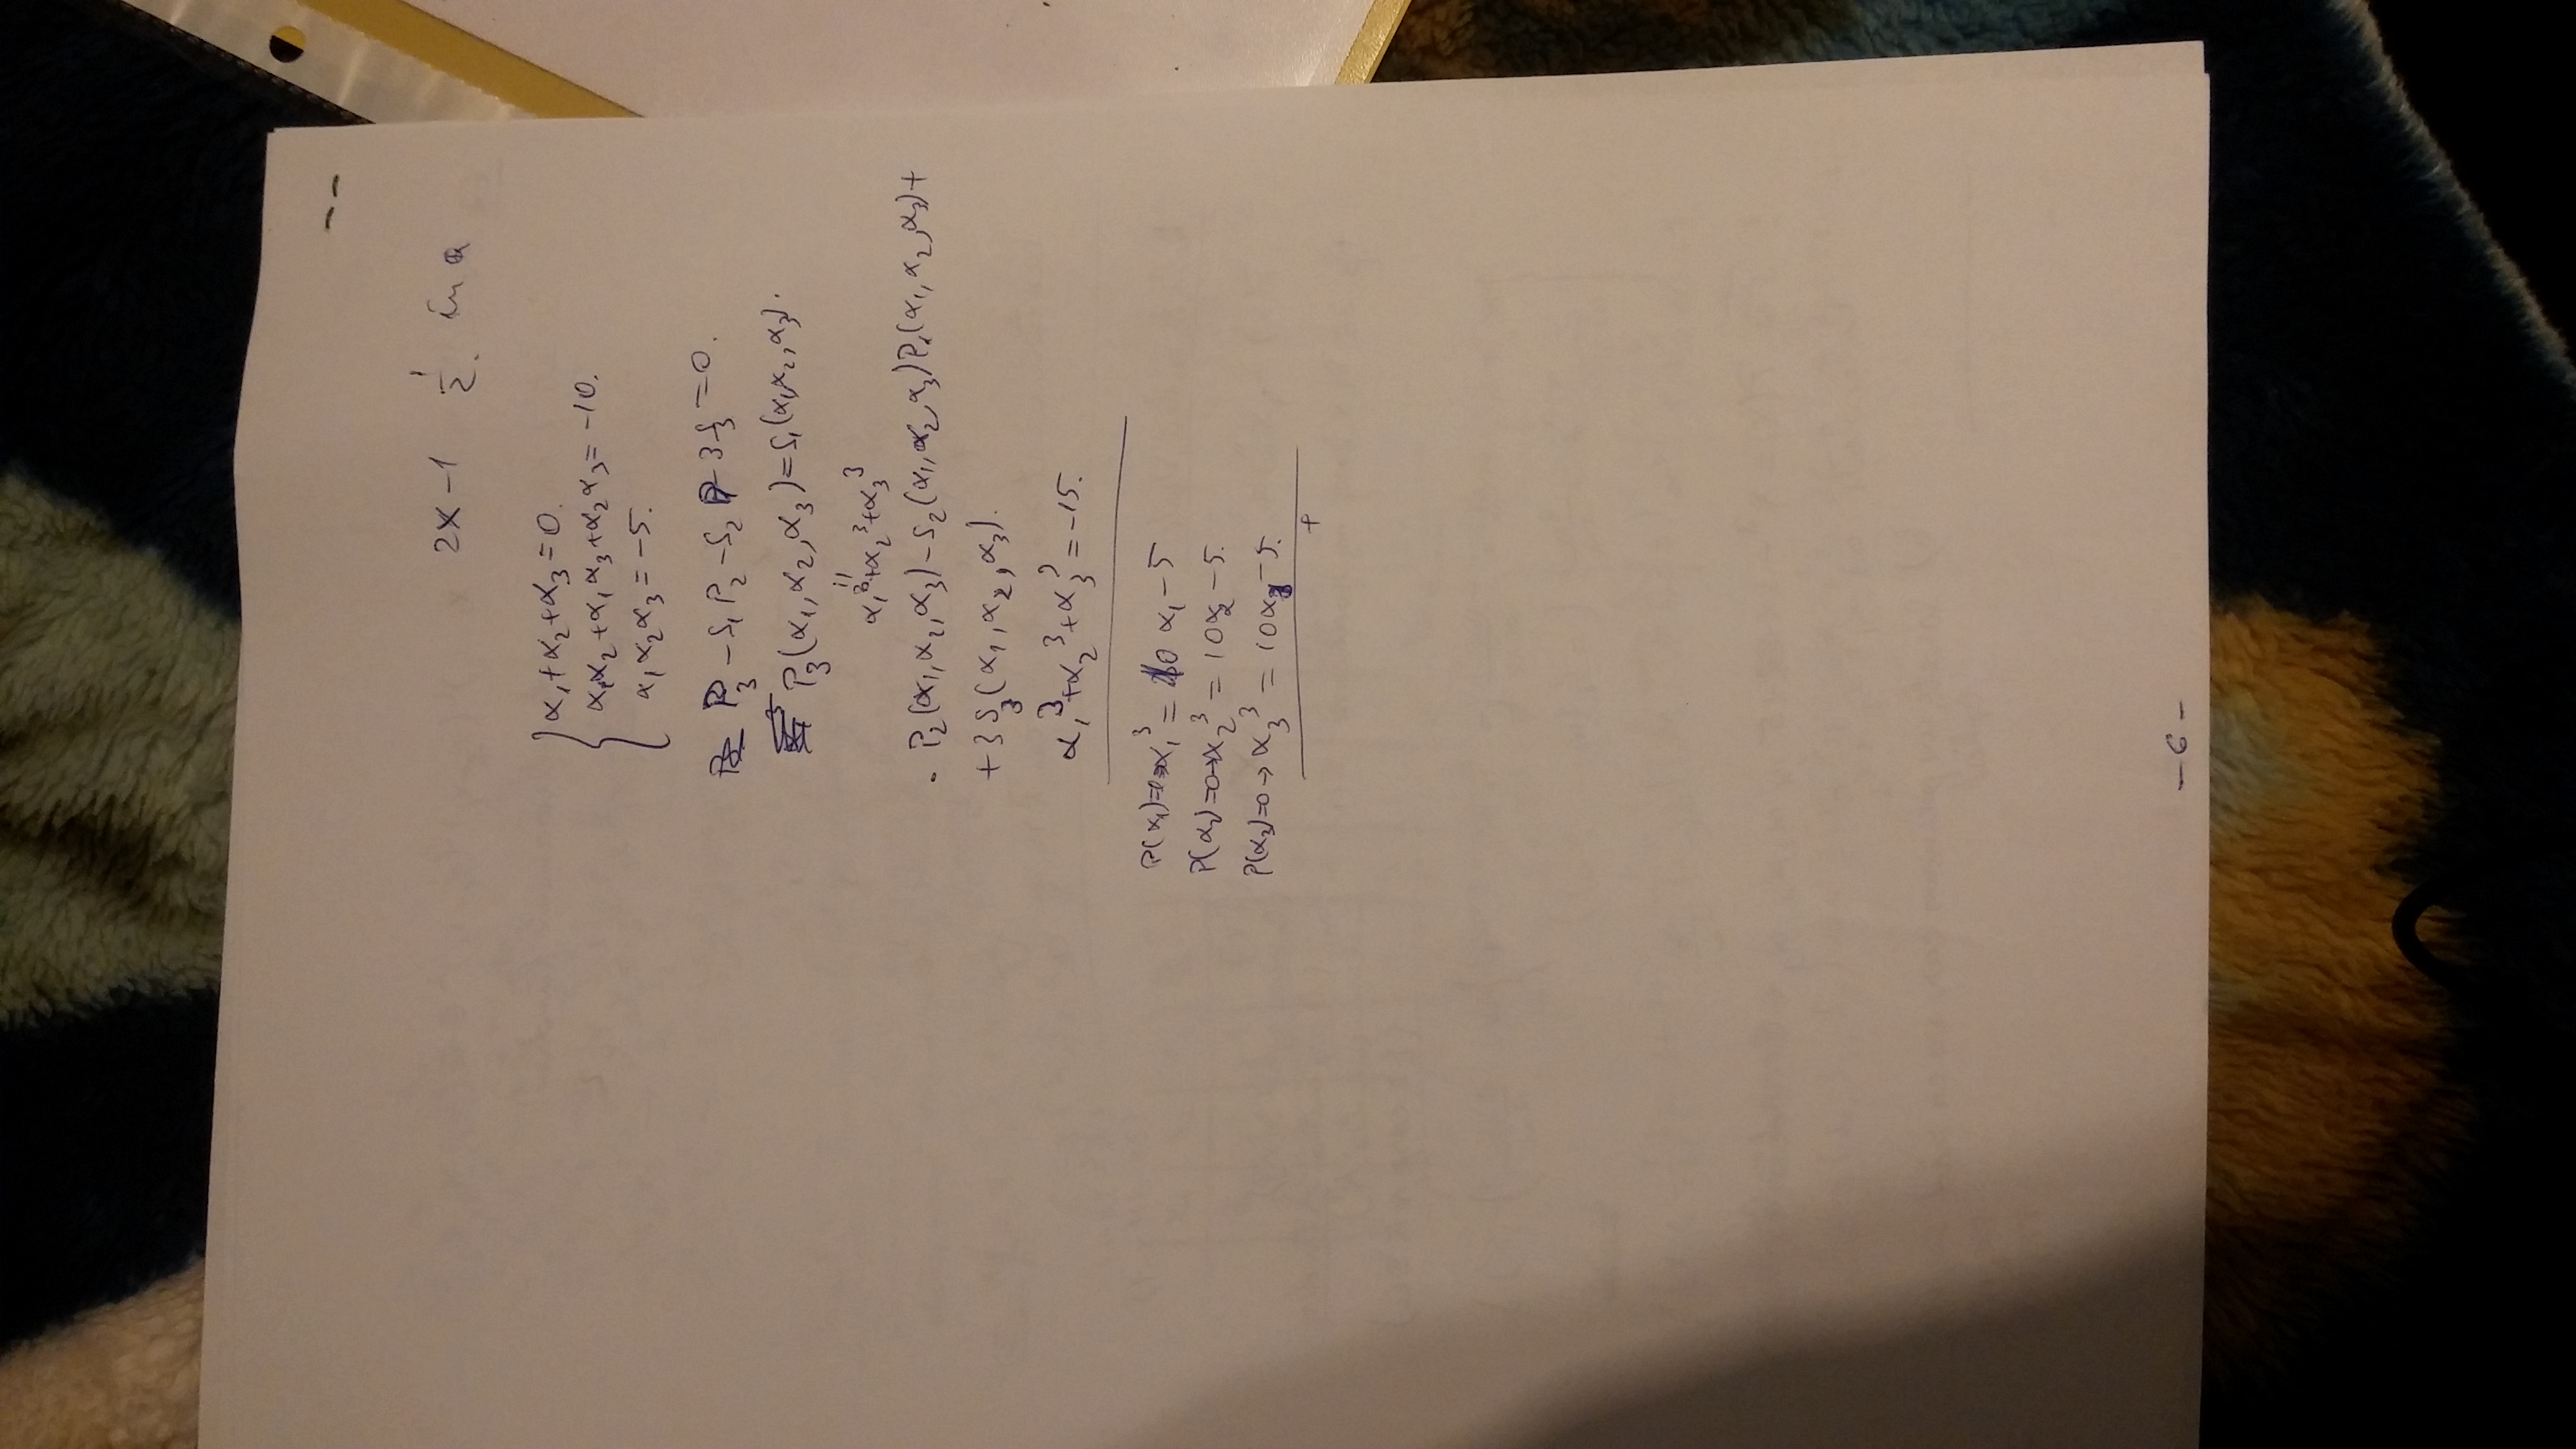 2x-1 1/2. în Q
α₁+α₂+α₃=0.
α₁α₂+α₁α₃+α₂α₃=-10.
α₁α₂α₃=-5.
P₃-S₁P₂-S₂P₁-3S₃=0.
P₃(α₁,α₂,α₃)=S₁(α₁,α₂,α₃).
"
α₁³+α₂³+α₃³
· P₂(α₁,α₂,α₃)-S₂(α₁,α₂,α₃)P₁(α₁,α₂,α₃)+
+3S₃(α₁,α₂,α₃).
α₁³+α₂³+α₃³=-15.
P(α₁)=0→α₁³=10α₁-5
P(α₂)=0→α₂³=10α₂-5.
P(α₃)=0→α₃³=10α₃-5.
+
-6-